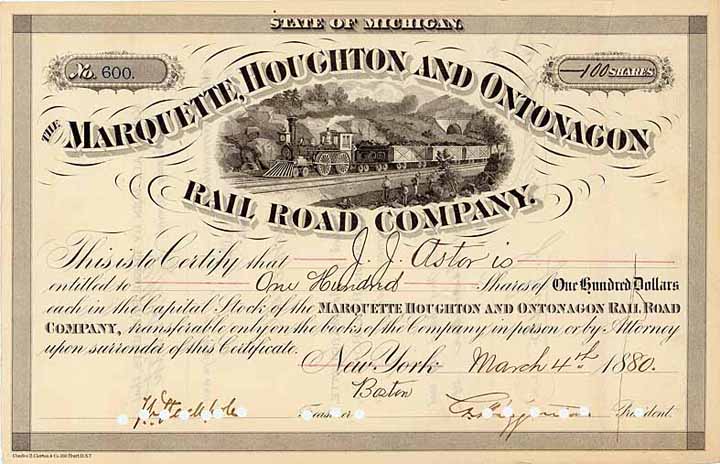 STATE OF MICHIGAN.
No. 600.
100 SHARES
THE MARQUETTE, HOUGHTON AND ONTONAGON
RAIL ROAD COMPANY.
This is to Certify that J. J. Astor is
entitled to One Hundred Shares of One Hundred Dollars
each in the Capital Stock of the MARQUETTE HOUGHTON AND ONTONAGON RAIL ROAD
COMPANY, transferable only on the books of the Company in person or by Attorney
upon surrender of this Certificate.
New York March 4th 1880.
Boston
Treasurer
President.